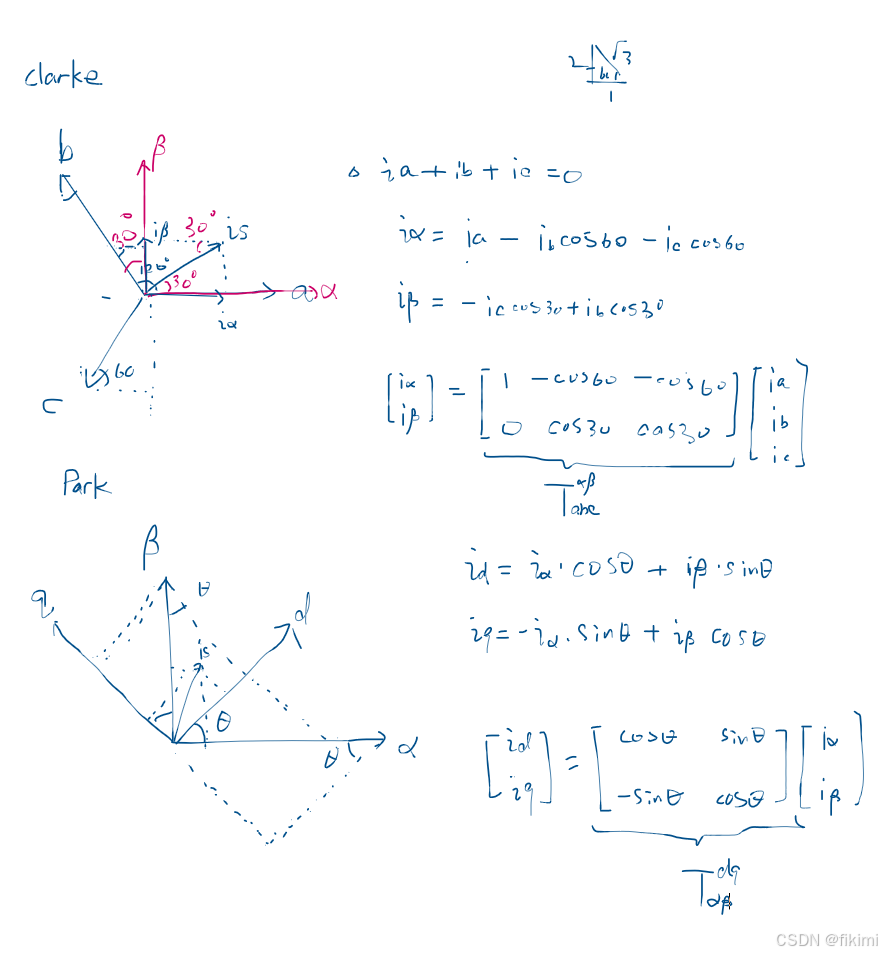 clarke
2 √3
1
b
β
30°
iβ
30°
is
120°
30°
a
α
iα
60
c
ia + ib + ic = 0
iα = ia - ib cos60 - ic cos60
iβ = - ic cos30 + ib cos30
[iα iβ] = [1 -cos60 -cos60
0 cos30 cos30] [ia ib ic]
T abc αβ
Park
β
q
θ
d
is
θ
θ
α
id = iα · cosθ + iβ · sinθ
iq = -iα · sinθ + iβ cosθ
[id iq] = [cosθ sinθ
-sinθ cosθ] [iα iβ]
T αβ dq
CSDN @fikimi